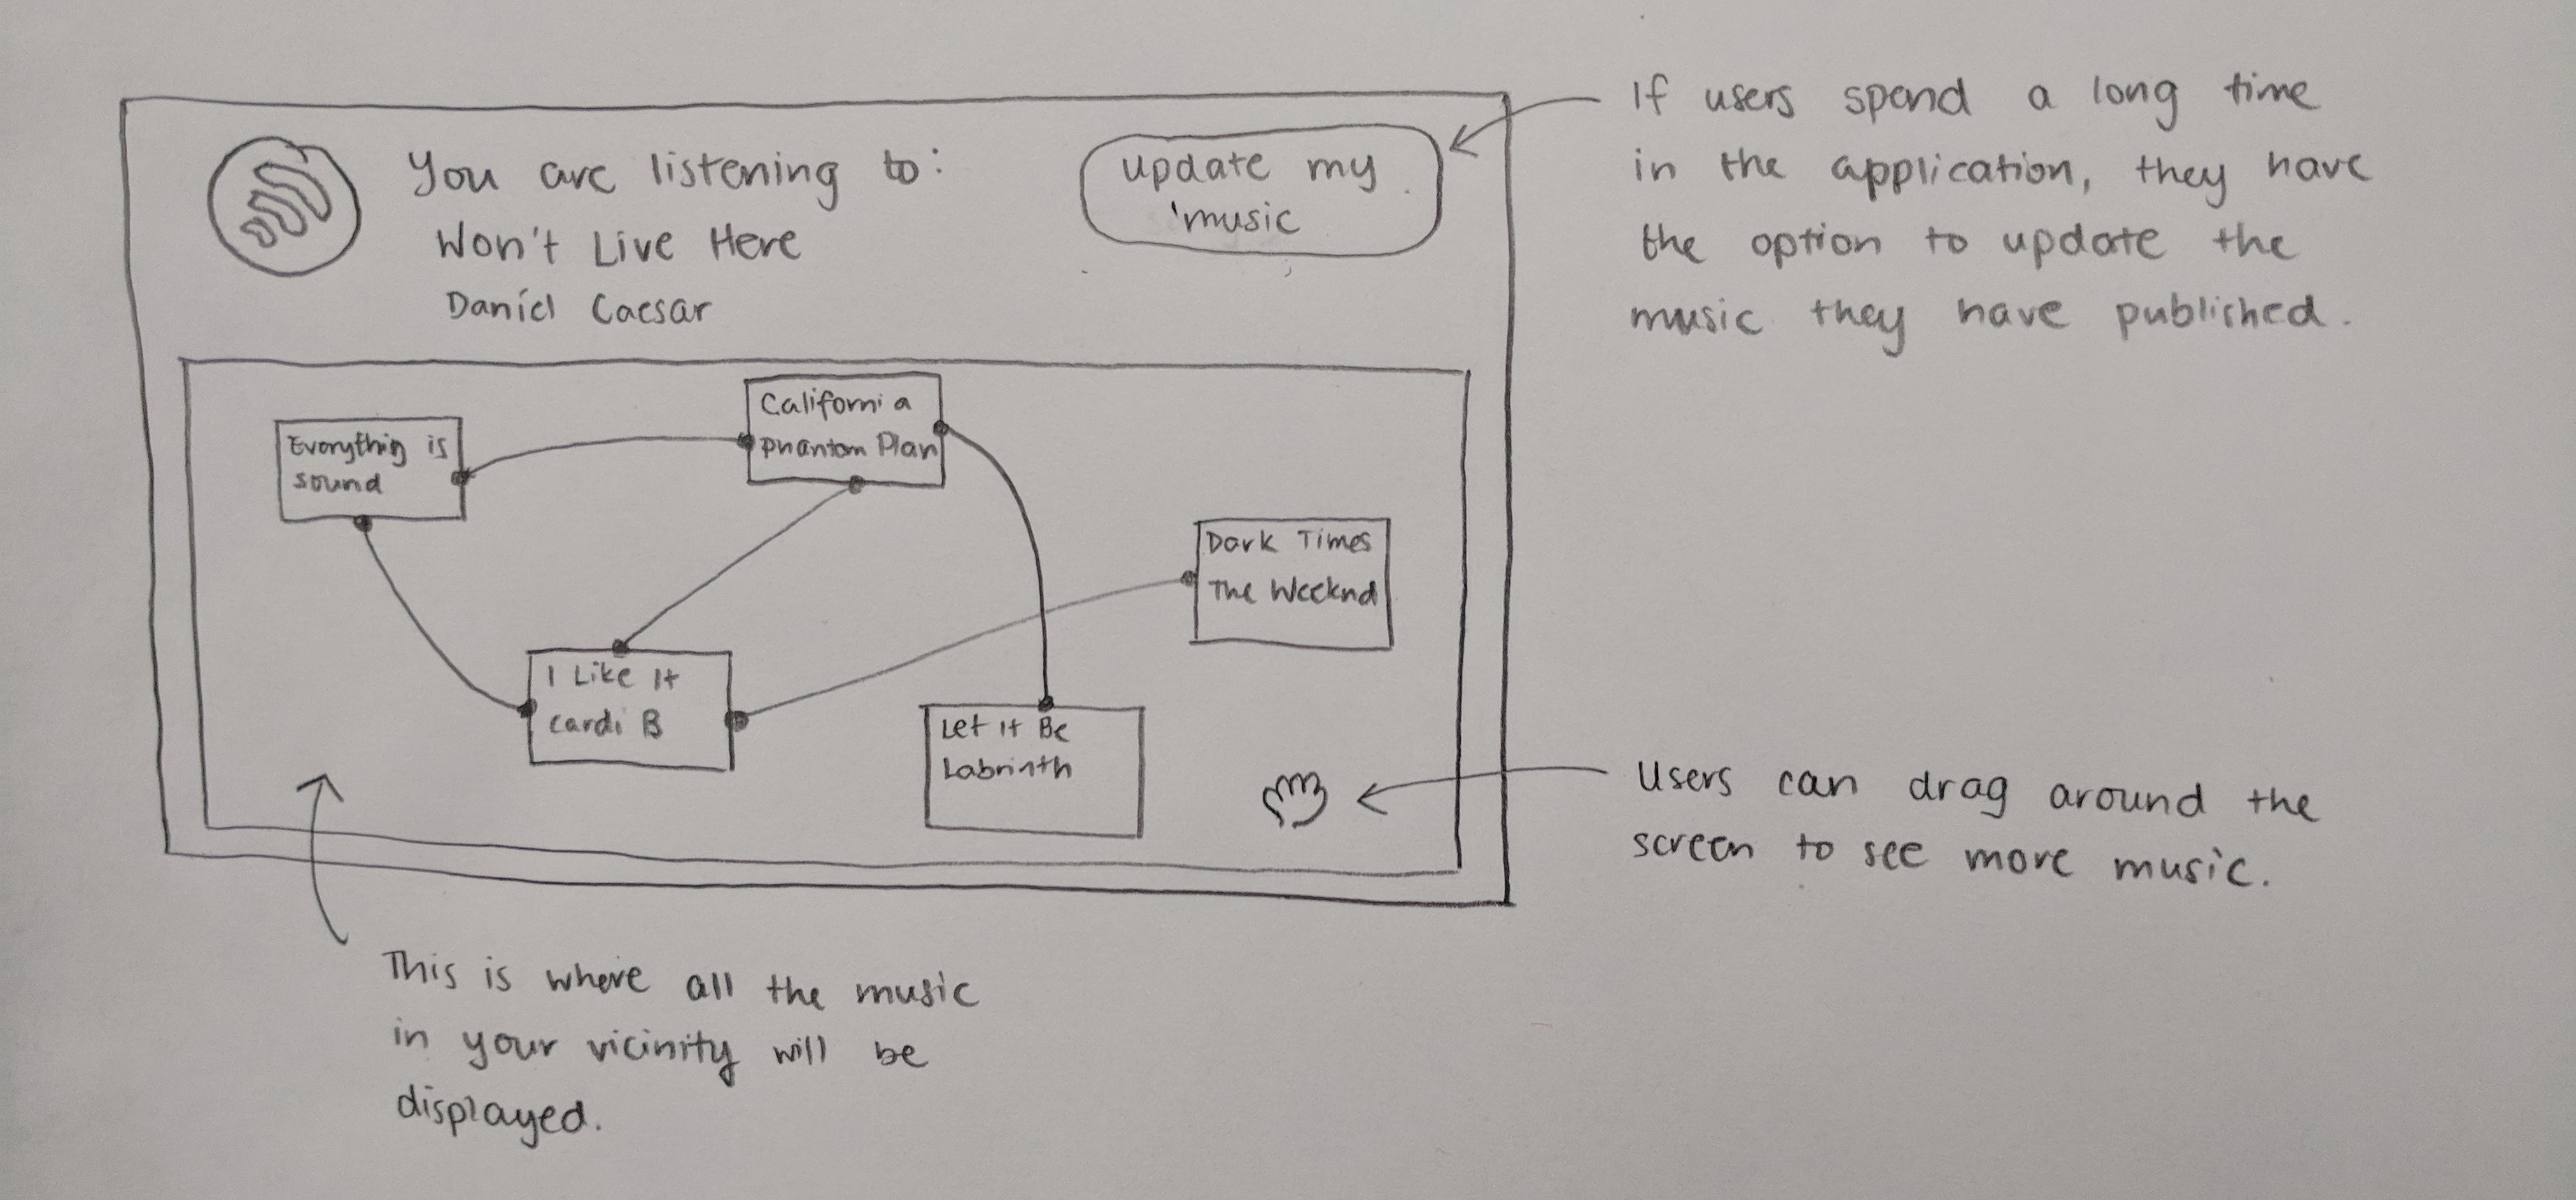 You are listening to:
Won't Live Here
Daniel Caesar
update my
music
If users spend a long time
in the application, they have
the option to update the
music they have published.
Everything is
sound
California
Phantom Plan
Dark Times
The Weeknd
I Like It
Cardi B
Let It Be
Labrinth
Users can drag around the
screen to see more music.
This is where all the music
in your vicinity will be
displayed.